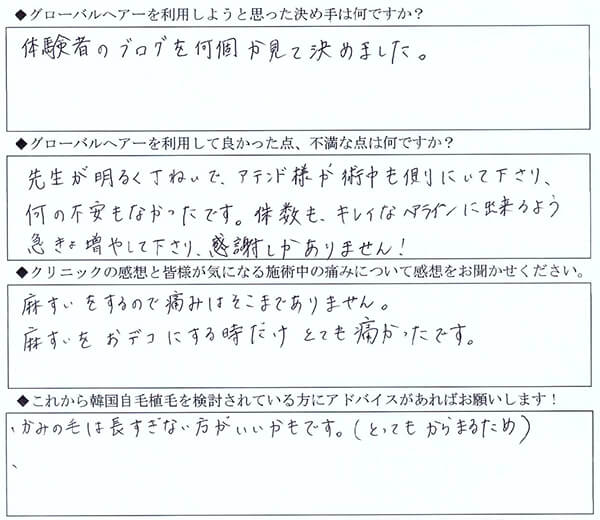 ◆グローバルヘアーを利用しようと思った決め手は何ですか？
体験者のブログを何個か見て決めました。
◆グローバルヘアーを利用して良かった点、不満な点は何ですか？
先生が明るく丁ねいで、アテンド様が術中も側にいて下さり、
何の不安もなかったです。株数も、キレイなヘアラインに出来るよう
急きょ増やして下さり、感謝しかありません！
◆クリニックの感想と皆様が気になる施術中の痛みについて感想をお聞かせください。
麻すいをするので痛みはそこまでありません。
麻すいをおデコにする時だけとても痛かったです。
◆これから韓国自毛植毛を検討されている方にアドバイスがあればお願いします！
、かみの毛は長すぎない方がいいかもです。(とってもからまるため)
、